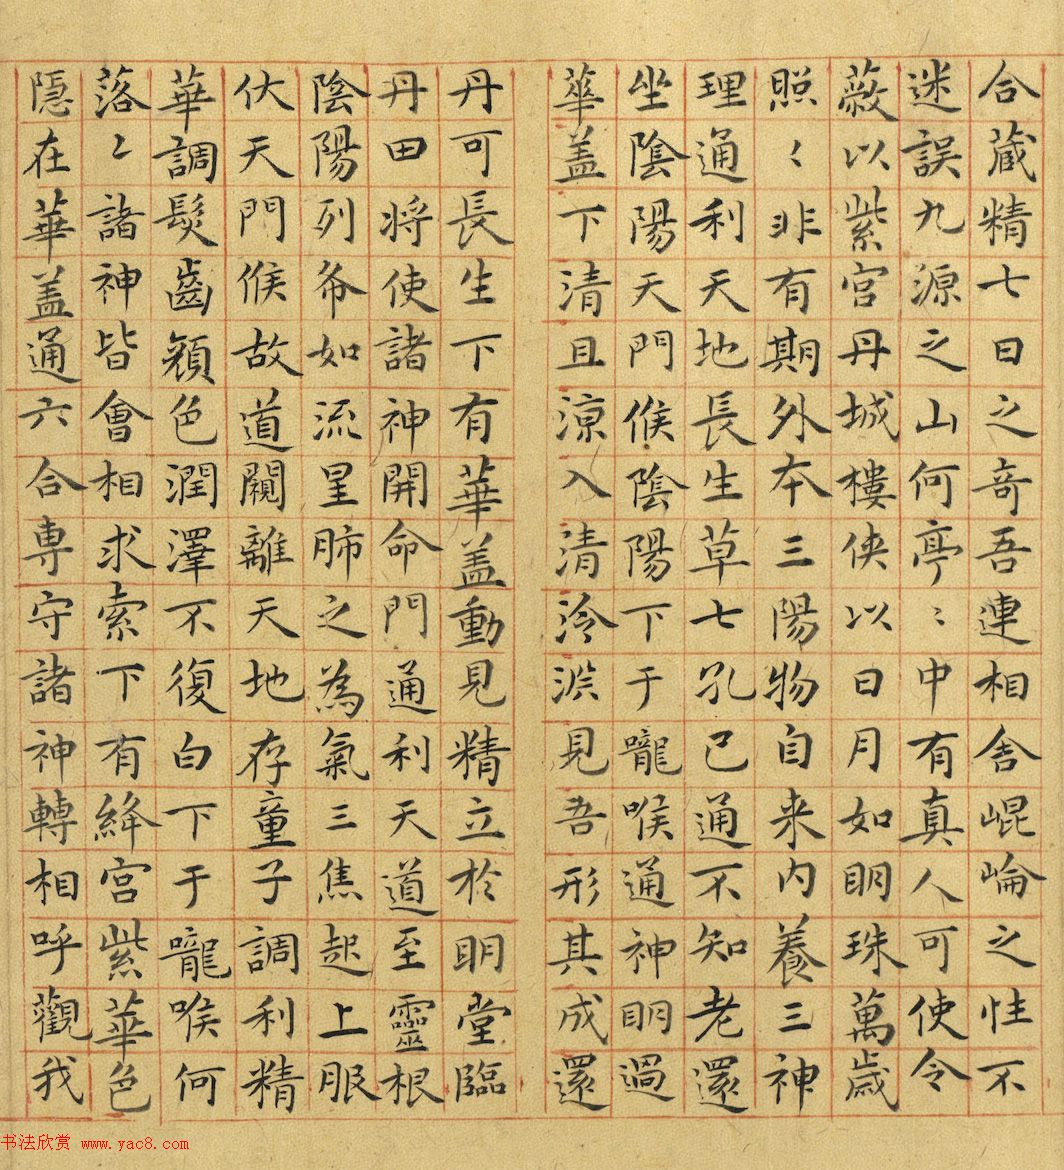 合藏精七日之奇吾連相舍崐崘之性不
迷誤九源之山何亭〻中有真人可使令
蔽以紫宮丹城樓侠以日月如明珠萬歲
照〻非有期外本三陽物自来内養三神
理通利天地長生草七孔已通不知老還
坐陰陽天門候陰陽下于嚨喉通神明過
華盖下清且涼入清泠渊見吾形其成還
丹可長生下有華盖動見精立於明堂臨
丹田将使諸神開命門通利天道至靈根
陰陽列布如流星肺之為氣三焦起上服
伏天門候故道闚離天地存童子調利精
華調髮齒顔色潤澤不復白下于嚨喉何
落〻諸神皆會相求索下有絳宮紫華色
隱在華盖通六合専守諸神轉相呼觀我
书法欣赏 www.yac8.com